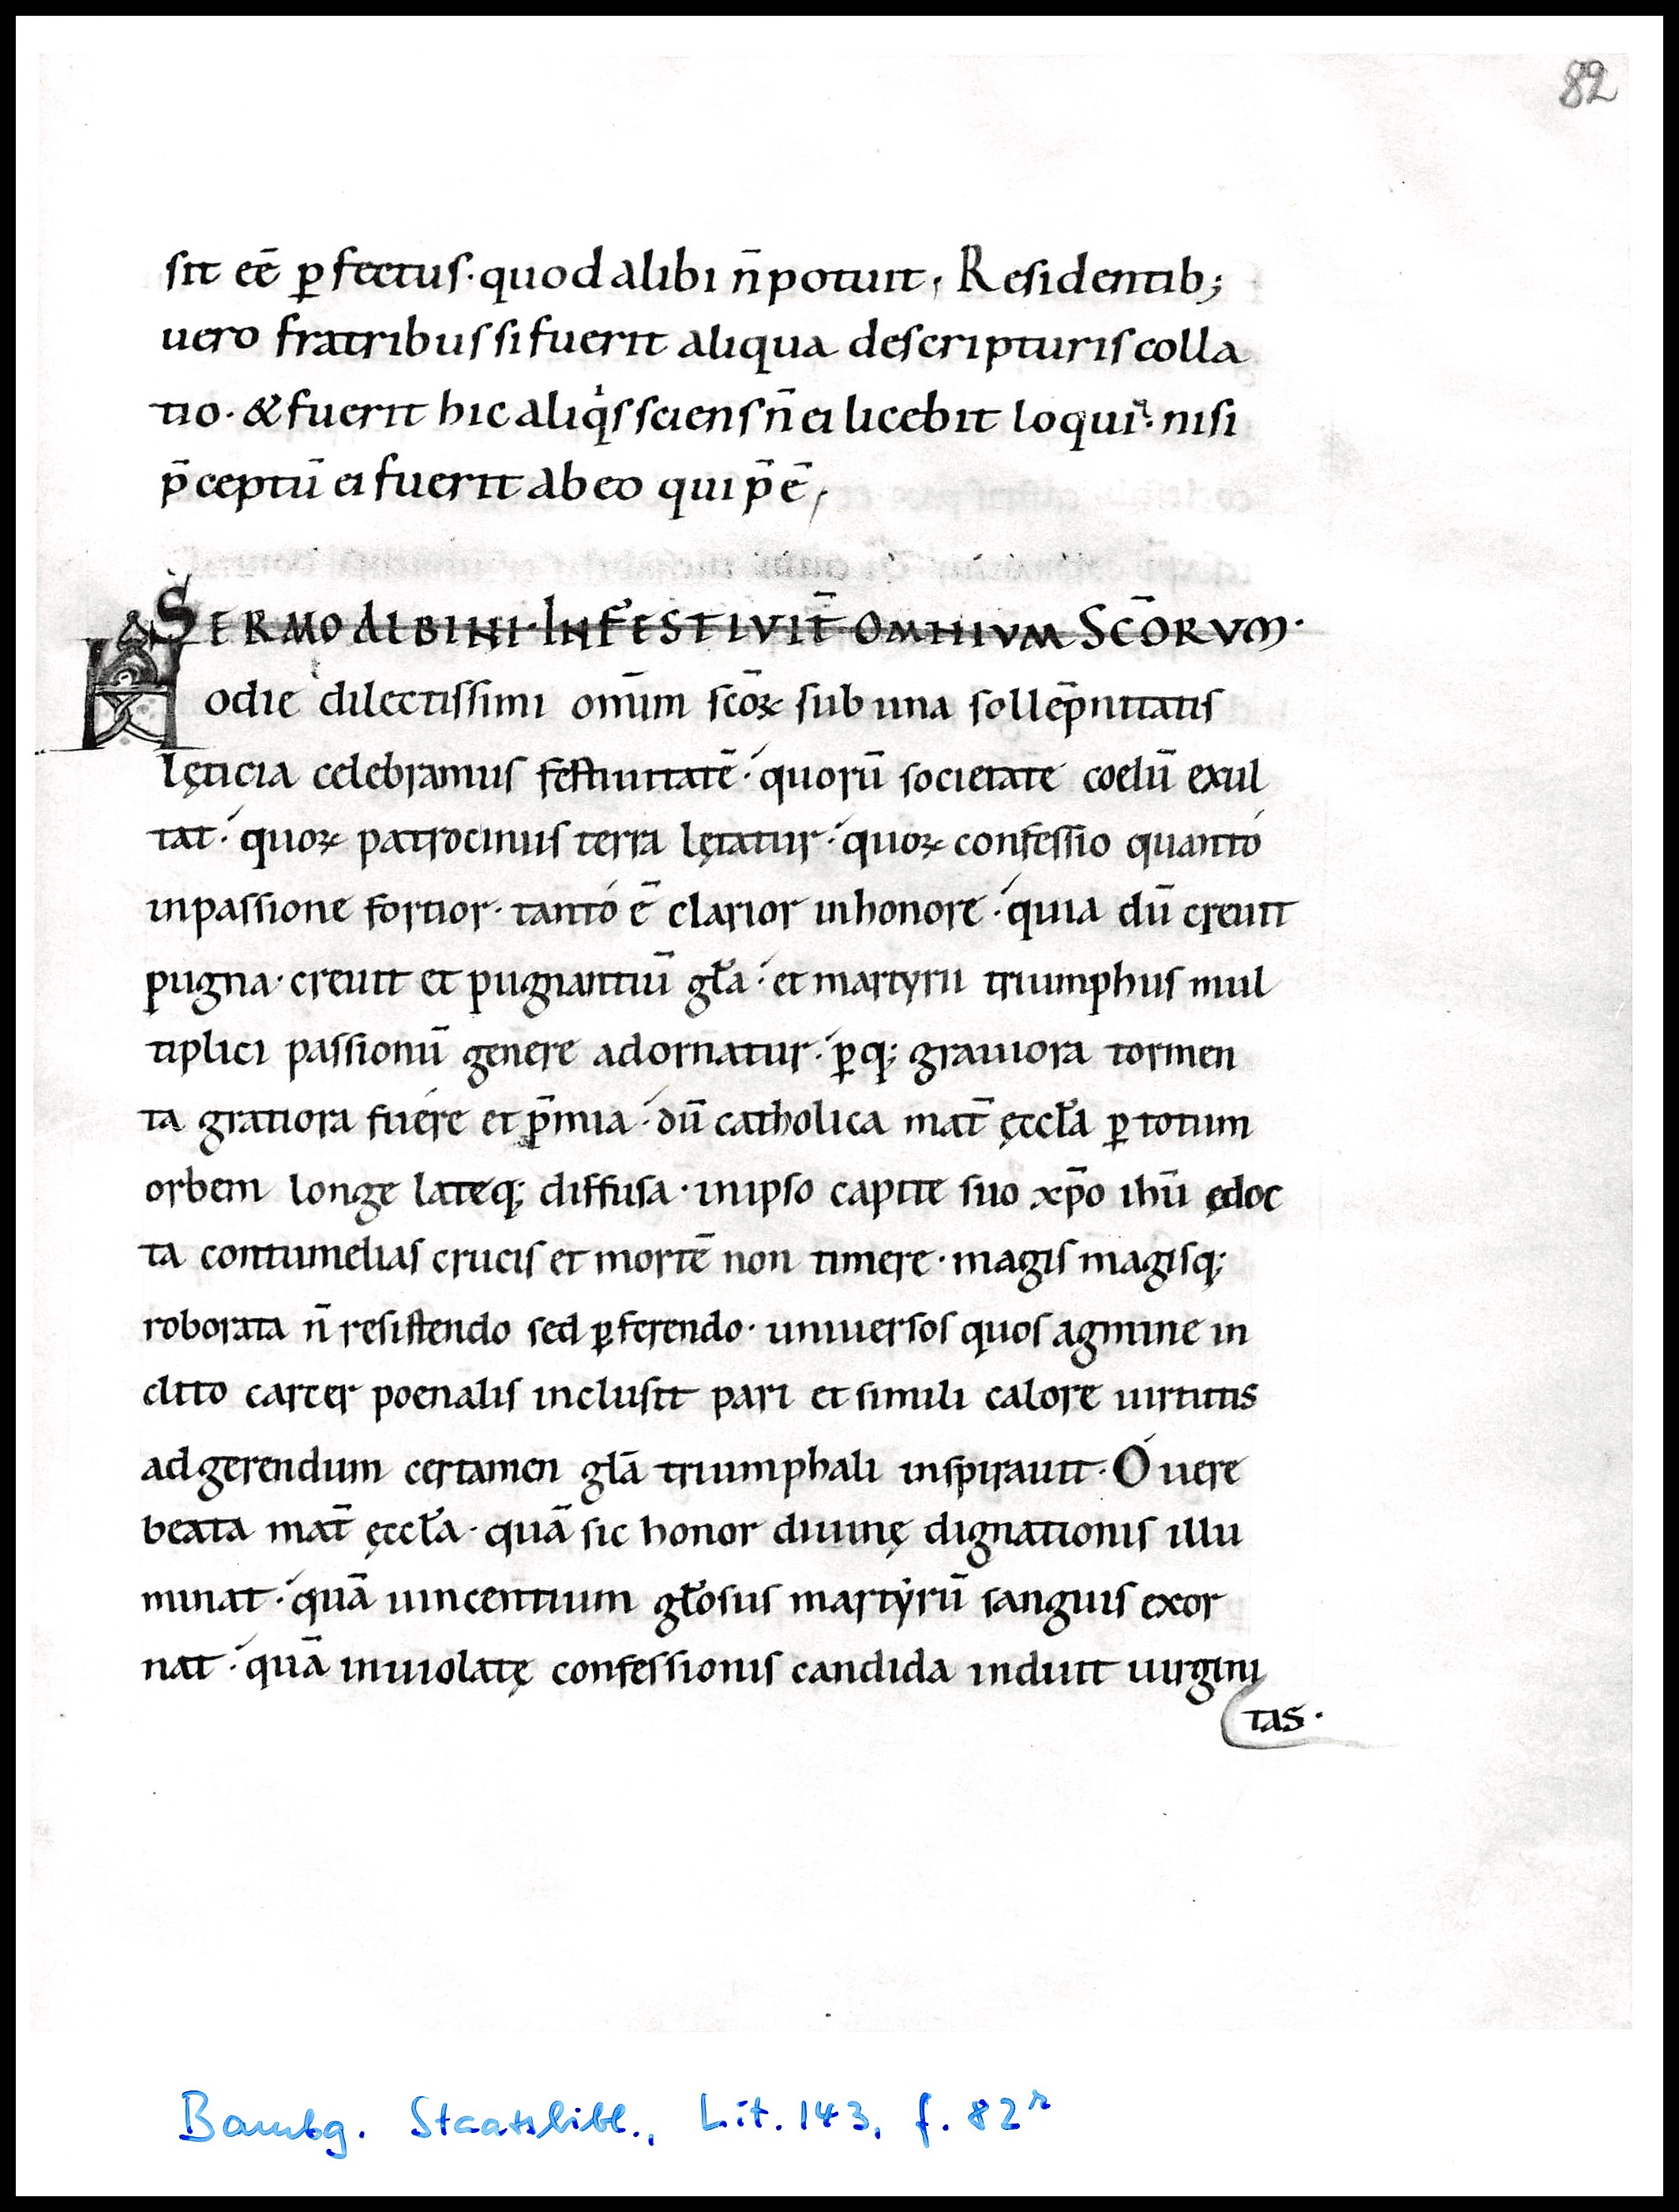 82
sit eē ꝑfectus· quod alibi n̄ potuit, Residentib;
uero fratribus si fuerit aliqua de scripturis colla
tio· & fuerit hic aliq's sciens n̄ ei licebit loqui: nisi
p̄ceptū ei fuerit ab eo qui p̄ē,
SERMO ALBINI· IN FESTIVIT̄ OMNIVM SC̄ORVM·
Hodie dilectissimi om̄im sc̄oꝝ sub una sollēpnitatis
lęticia celebramus festiuitatē· quorū societate coelū exul
tat· quoꝝ patrociniis terra lętatur· quoꝝ confessio quantó
in passione fortior· tantó ē clarior in honore· quia dū creuit
pugna· creuit et pugnantiū gła· et martyrii triumphus mul
tiplici passionū genere adornatur· ꝑq; grauiora tormen
ta gratiora fuére et p̄mia· dū catholica mat̄ ęccła ꝑ totum
orbem longe lateq; diffusa· in ipso capite suo xp̄o ihū ędoc
ta contumelias crucis et mortē non timere· magis magisq;
roborata n̄ resistendo sed ꝑferendo· uniuersos quos agmine in
clito carcer poenalis inclusit pari et simili calore uirtutis
ad gerendum certamen glā triumphali inspirauit· Ó uere
beata mat̄ ęccła· quā sic honor diuinę dignationis illu
minat· quā uincentium głosus martyrū sanguis exor
nat· quā inuiolatę confessionis candida induit uirgini
tas·
Bambg. Staatsbibl., Lit. 143, f. 82r